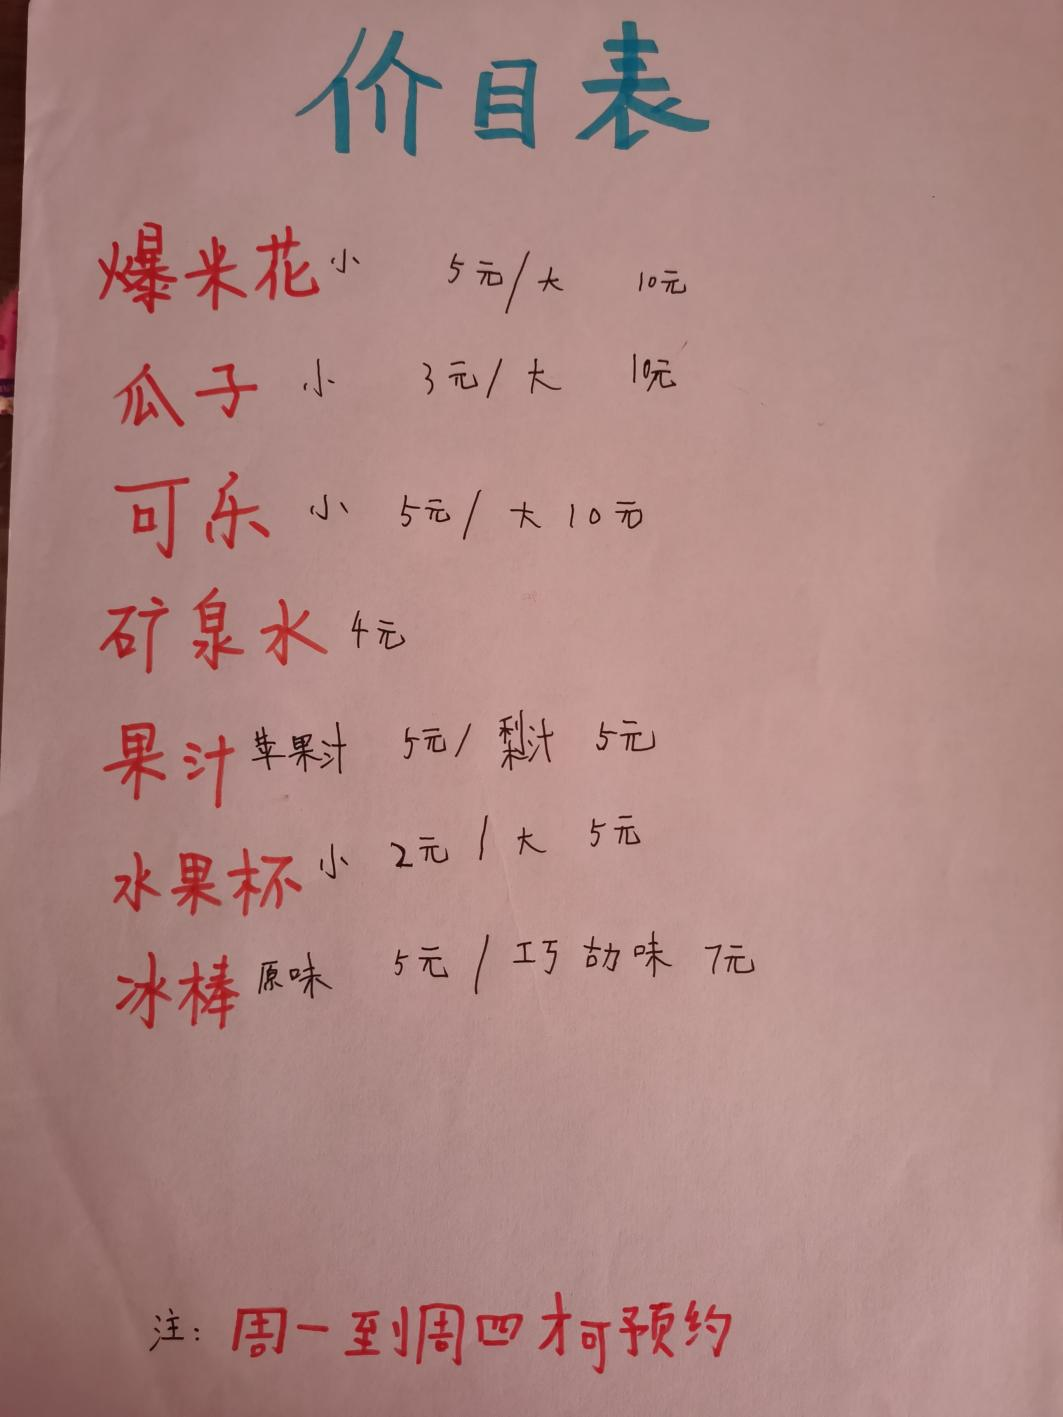 价目表
爆米花 小 5元/大 10元
瓜子 小 3元/大 10元
可乐 小 5元/大 10元
矿泉水 4元
果汁 苹果汁 5元/梨汁 5元
水果杯 小 2元/大 5元
冰棒 原味 5元/巧劼味 7元
注:周一到周四才可预约